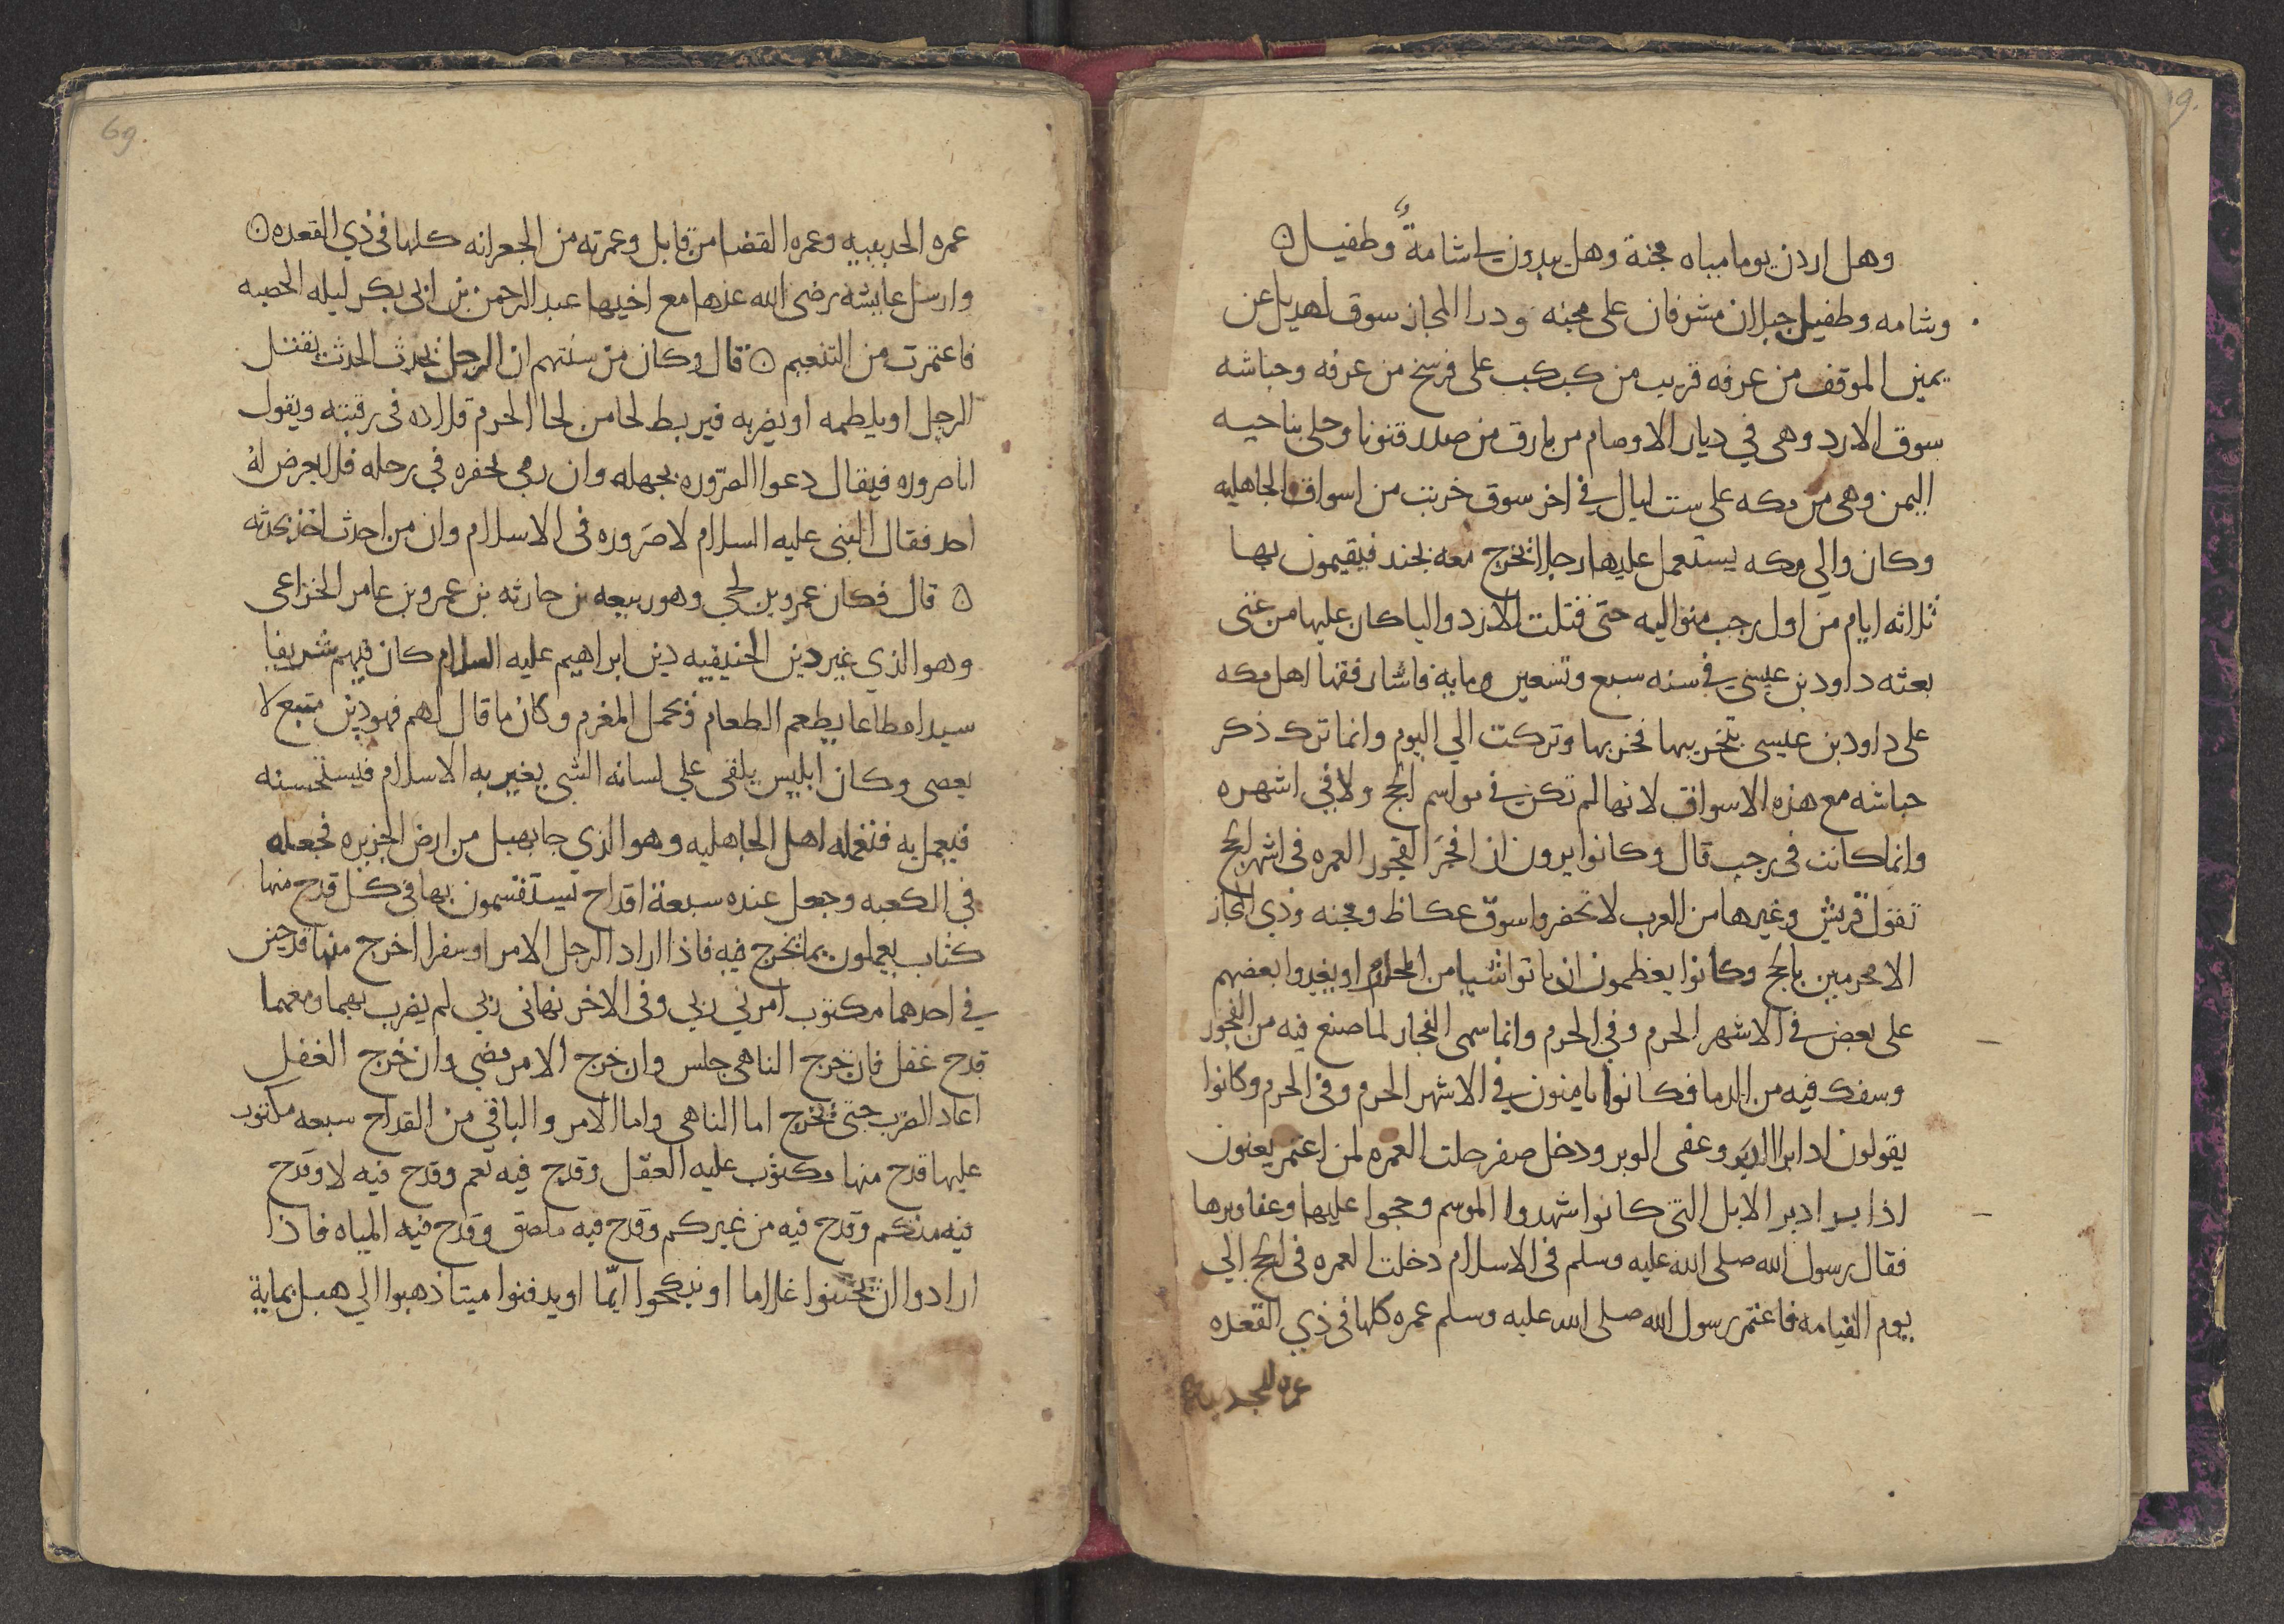 وهل اردن يوما مياه مجنة وهل يبدون لي شامةٌ وطفيل ن
وشامه وطفيل جبلان مشرفان على مجنه وذرا المجاز سوق لهذيل عن
يمين الموقف من عرفه قريب من كبكب على فرسخ من عرفه وحباشه
سوق الازد وهى في ديار الاوصام من بارق من صدر قنونا وحلى بناحيه
اليمن وهى من مكه على ست ليال في اخر سوق خربت من اسواق الجاهليه
وكان والي مكه يستعمل عليها رجلا يخرج معه بجند فيقيمون بها
ثلاثه ايام من اول رجب متواليه حتى قتلت الازد واليا كان عليها من غنى
بعثه داود بن عيسى في سنه سبع وتسعين ومايه فاشار فقها اهل مكه
على داود بن عيسى بتخريبها فخربها وتركت الي اليوم وانما ترك ذكر
حباشه مع هذه الاسواق لانها لم تكن في مواسم الحج ولا في اشهره
وانما كانت فى رجب قال وكانوا يرون ان افجَر الفجور العمره فى اشهر الحج
تقول قريش وغيرها من العرب لا تحضروا سوق عكاظ ومجنه وذي المجاز
الا محرمين بالحج وكانوا يعظمون ان ياتوا شيا من المحارم او يغدوا بعضهم
على بعض في الاشهر الحرم وفي الحرم وانما سمى الفجار لما صنع فيه من الفجور
وسفك فيه من الدما فكانوا يامنون في الاشهر الحرم وفى الحرم وكانوا
يقولون اذا برا الدبر وعفى الوبر ودخل صفر حلت العمره لمن اعتمر يعنون
اذا برا دبر الابل التى كانوا شهدوا الموسم وحجوا عليها وعفا وبرها
فقال رسول الله صلى الله عليه وسلم فى الاسلام دخلت العمره فى الحج الي
يوم القيامه فاعتمر رسول الله صلى الله عليه وسلم عمره كلها فى ذي القعده
عمره الحديبيه
69.
عمره الحديبيه وعمره القضا من قابل وعمرته من الجعرانه كلها فى ذي القعده ن
وارسل عايشه رضى الله عنها مع اخيها عبد الرحمن بن ابى بكر ليله الحصبه
فاعتمرت من التنعيم ن قال وكان من سنتهم ان الرجل يحدث الحدث يقتل
الرجل او يلطمه او يضربه فيربط لحا من لحا الحرم قلاده فى رقبته ويقول
انا صروره فيقال دعوا الصّروره بجهله وان رمى بجفره في رحله فلا يعرض لهُ
احد فقال النبى عليه السلام لا صَروره فى الاسلام وان من احدث اخذ بحدثه
ن قال فكان عمرو بن لحي وهو ربيعه بن حارثه بن عمرو بن عامر الخزاعى
وهو الذي غير دين الحنيفيه دين ابراهيم عليه السلام كان فيهم شريفا
سيدا مطاعا يطعم الطعام ويحمل المغرم وكان ما قال لهم فهو دين متبع لا
يعصى وكان ابليس يلقى علي لسانه الشى يغير به الاسلام فيستحسنه
فيعمل به فتعمله اهل الجاهليه وهو الذي جا بهبل من ارض الجزيره فجعله
في الكعبه وجعل عنده سبعة اقداح يستقسمون بها فى كل قدح منها
كتاب يعملون بما يخرج فيه فاذا اراد الرجل الامر او سفرا اخرج منها قدحين
في احدهما مكتوب امرني ربي وفى الاخر نهانى ربى لم يضرب بهما ومعهما
قدح غفل فان خرج الناهى جلس وان خرج الامر مضي وان خرج الغفل
اعاد الضرب حتى يخرج اما الناهى واما الامر والباقي من القداح سبعه مكتوب
عليها قدح منها مكتوب عليه العقل وقدح فيه نعم وقدح فيه لا وقدح
فيه منكم وقدح فيه من غيركم وقدح فيه ملصق وقدح فيه المياه فاذا
ارادوا ان يختنوا غلاما او ينكحوا ايّما او يدفنوا ميتا ذهبوا الي هبل بماية